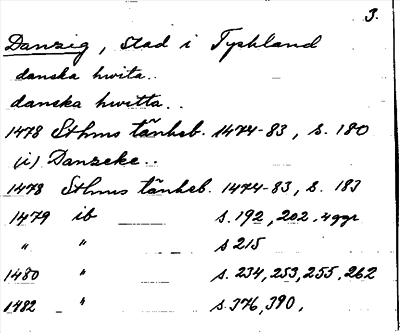 3.
Danzig, stad i Tyskland
danska hwita..
danska hwitta..
1478 Sthms tänkeb. 1474-83, s. 180
(i) Danzeke..
1478 Sthms tänkeb. 1474-83, s. 183
1479 ib s. 192, 202. 4 ggr
" " s 215
1480 " s. 234, 253, 255, 262
1482 " s. 376, 390.